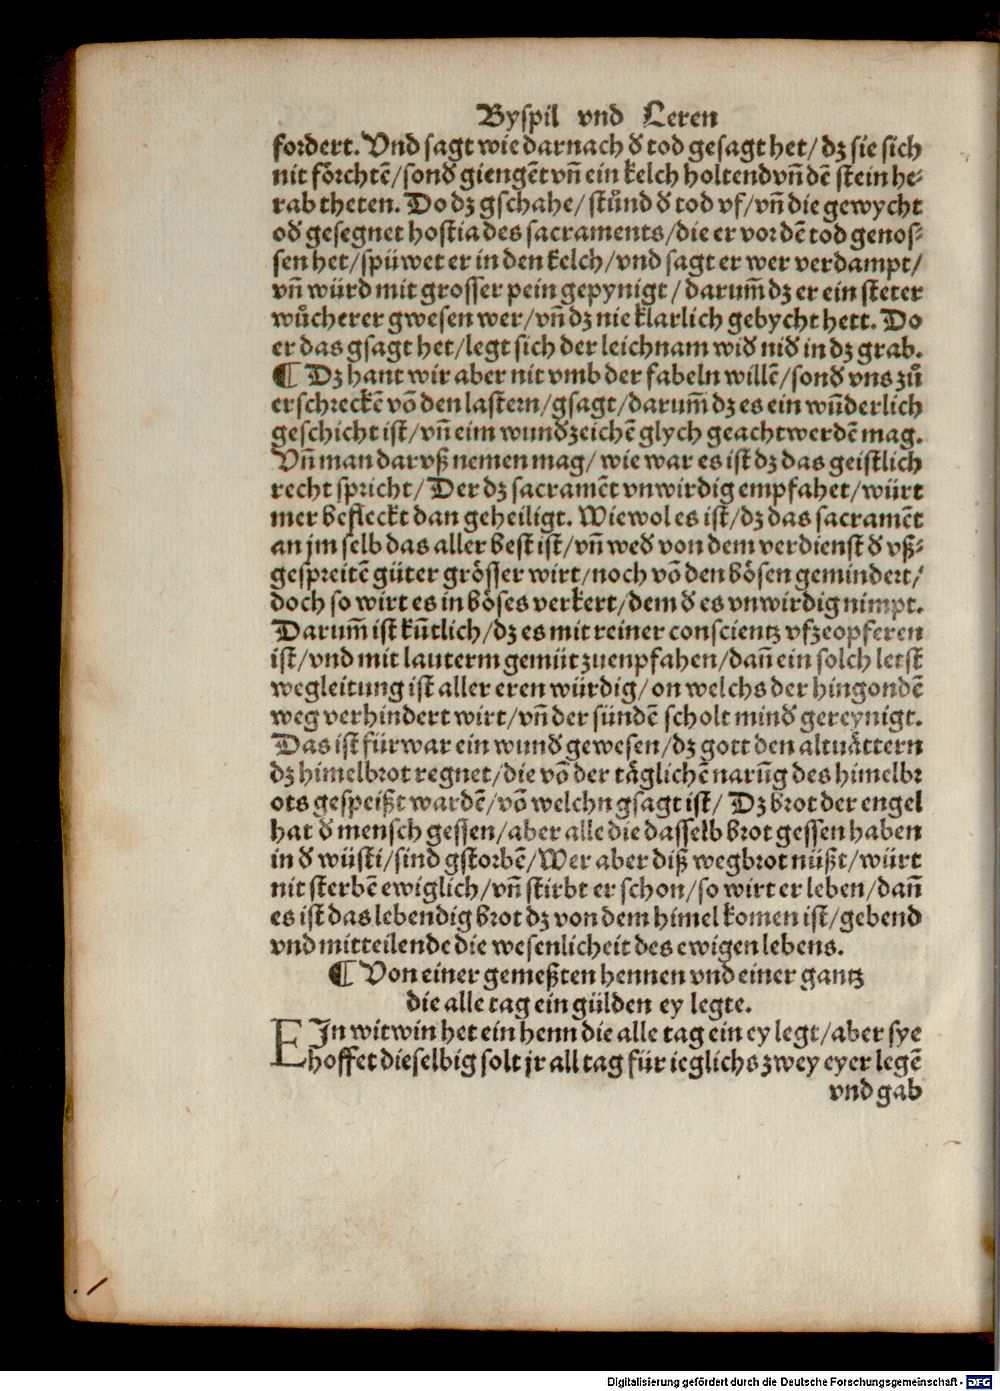 Byspil vnd Leren
fordert. Vnd sagt wie darnach d̕ tod gesagt het/ dz sie sich
nit förchtē/ sond̕ giengēt vn̄ ein kelch holtend vn̄ dē stein he⸗
rab theten. Do dz gschahe/ stůnd d̕ tod vf/ vn̄ die gewycht
od̕ gesegnet hostia des sacraments/ die er vor dē tod genos⸗
sen het/ spüwet er in den kelch/ vnd sagt er wer verdampt/
vn̄ würd mit grosser pein gepynigt/ darum̄ dz er ein steter
wůcherer gwesen wer/ vn̄ dz nie klarlich gebycht hett. Do
er das gsagt het/ legt sich der leichnam wid̕ nid̕ in dz grab.
¶ Dz hant wir aber nit vmb der fabeln willē/ sond̕ vns zů
erschreckē vō den lastern/ gsagt/ darum̄ dz es ein wūderlich
geschicht ist/ vn̄ eim wund̕zeichē glych geacht werdē mag.
Vn̄ man dar vß nemen mag/ wie war es ist dz das geistlich
recht spricht/ Der dz sacramēt vnwirdig empfahet/ würt
mer befleckt dan geheiligt. Wiewol es ist/ dz das sacramēt
an jm selb das aller best ist/ vn̄ wed̕ von dem verdienst d̕ vß⸗
gespreitē güter grösser wirt/ noch vō den bösen gemindert/
doch so wirt es in böses verkert/ dem d̕ es vnwirdig nimpt.
Darum̄ ist kūtlich/ dz es mit reiner conscientz vfzeopferen
ist/ vnd mit lauterm gemüt zuenpfahen/ dan̄ ein solch letst
wegleitung ist aller eren würdig/ on welchs der hingondē
weg verhindert wirt/ vn̄ der sündē scholt mind̕ gereynigt.
Das ist fürwar ein wund̕ gewesen/ dz gott den altuättern
dz himelbrot regnet/ die vō der täglichē narūg des himelbr
ots gespeißt wardē/ vō welchn gsagt ist/ Dz brot der engel
hat d̕ mensch gessen/ aber alle die dasselb brot gessen haben
in d̕ wüsti/ sind gstorbē/ Wer aber diß wegbrot nüßt/ würt
nit sterbē ewiglich/ vn̄ stirbt er schon/ so wirt er leben/ dan̄
es ist das lebendig brot dz von dem himel komen ist/ gebend
vnd mitteilende die wesenlicheit des ewigen lebens.
¶ Von einer gemeßten hennen vnd einer gantz
die alle tag ein gülden ey legte.
EIn witwin het ein henn die alle tag ein ey legt/ aber sye
hoffet dieselbig solt jr all tag für ieglichs zwey eyer legē
vnd gab
Digitalisierung gefördert durch die Deutsche Forschungsgemeinschaft - DFG